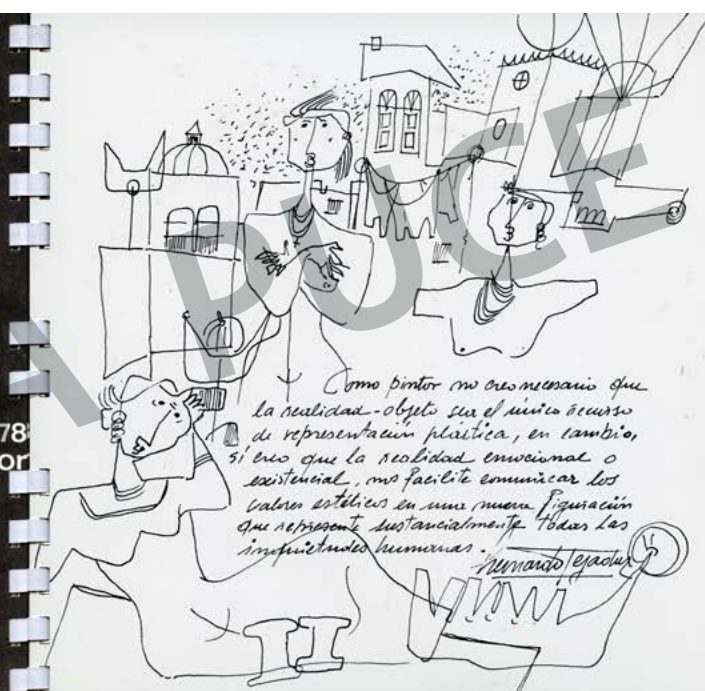 A PUCE
78
or
Como pintor no creo necesario que
la realidad-objeto sea el único recurso
de representación plástica, en cambio,
sí creo que la realidad emocional o
existencial, nos facilite comunicar los
valores estéticos en una nueva figuración
que represente sustancialmente todas las
inquietudes humanas.
Hernando Tejada